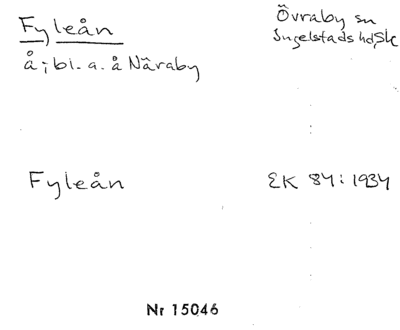 Fyleån
Övraby sn
Ingelstads hd, Sk
å; bl. a. å Näraby
Fyleån
EK 84: 1934
Nr 15046